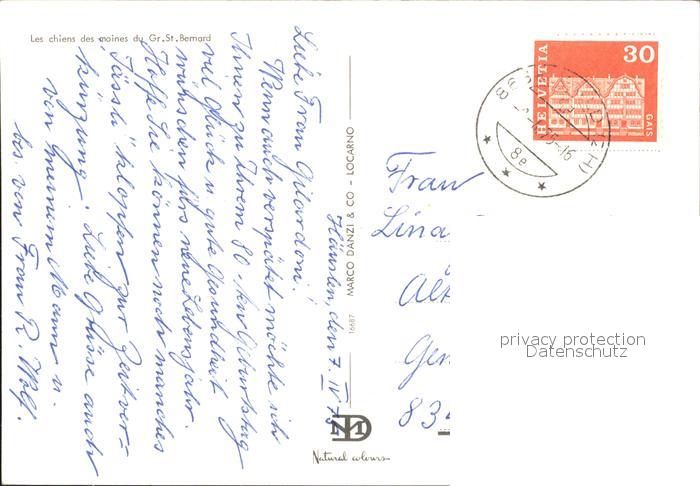 Les chiens des moines du Gr. St. Bernard
Häuslen, den 7. IV. 75
Liebe Frau Gilardoni!
Wenn auch verspätet möchte ich
Ihnen zu Ihrem 80-ten Geburtstag
viel Glück u. gute Gesundheit
wünschen fürs neue Lebensjahr.
Hoffe Sie können noch manches
Jässli klopfen zur Zeitver=
kürzung. Liebe Grüsse auch
von meinem Mann u.
bis von Frau R. Wolf.
16687 MARCO DANZI & CO - LOCARNO
MD
Natural colours
HELVETIA
30
GAIS
8e
Frau
Lina
Gem
834
privacy protection
Datenschutz